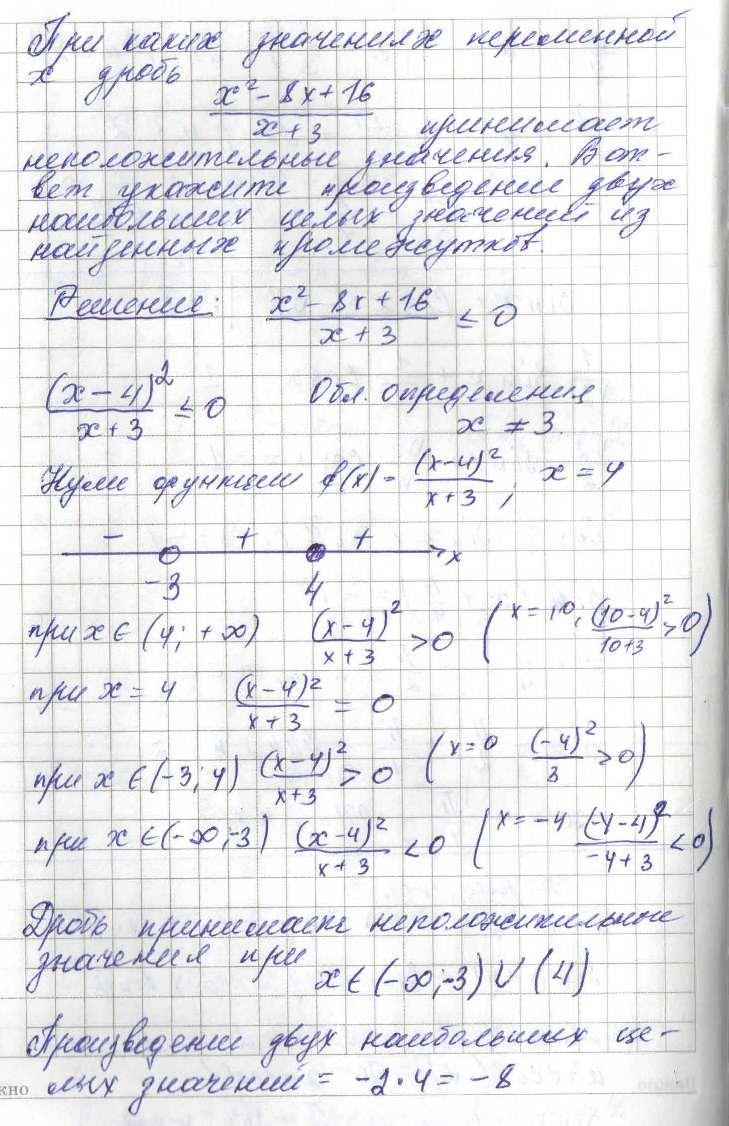 При каких значениях переменной
x дробь
x² - 8x + 16 / x + 3 принимает
неположительные значения. В от-
вет укажите произведение двух
наибольших целых значений из
найденных промежутков.
Решение: x² - 8x + 16 / x + 3 ≤ 0
(x - 4)² / x + 3 ≤ 0 Обл. определения
x ≠ 3.
Нули функции f(x) = (x-4)² / x+3, x = 4
- + + x
-3 4
при x ∈ (4; +∞) (x-4)² / x+3 > 0 (x = 10; (10-4)² / 10+3 > 0)
при x = 4 (x-4)² / x+3 = 0
при x ∈ (-3; 4) (x-4)² / x+3 > 0 (x = 0 (-4)² / 3 > 0)
при x ∈ (-∞; -3) (x-4)² / x+3 < 0 (x = -4 (-4-4)² / -4+3 < 0)
Дробь принимает неположительные
значения при
x ∈ (-∞; -3) ∪ (4)
Произведение двух наибольших це-
лых значений = -2 · 4 = -8
жно